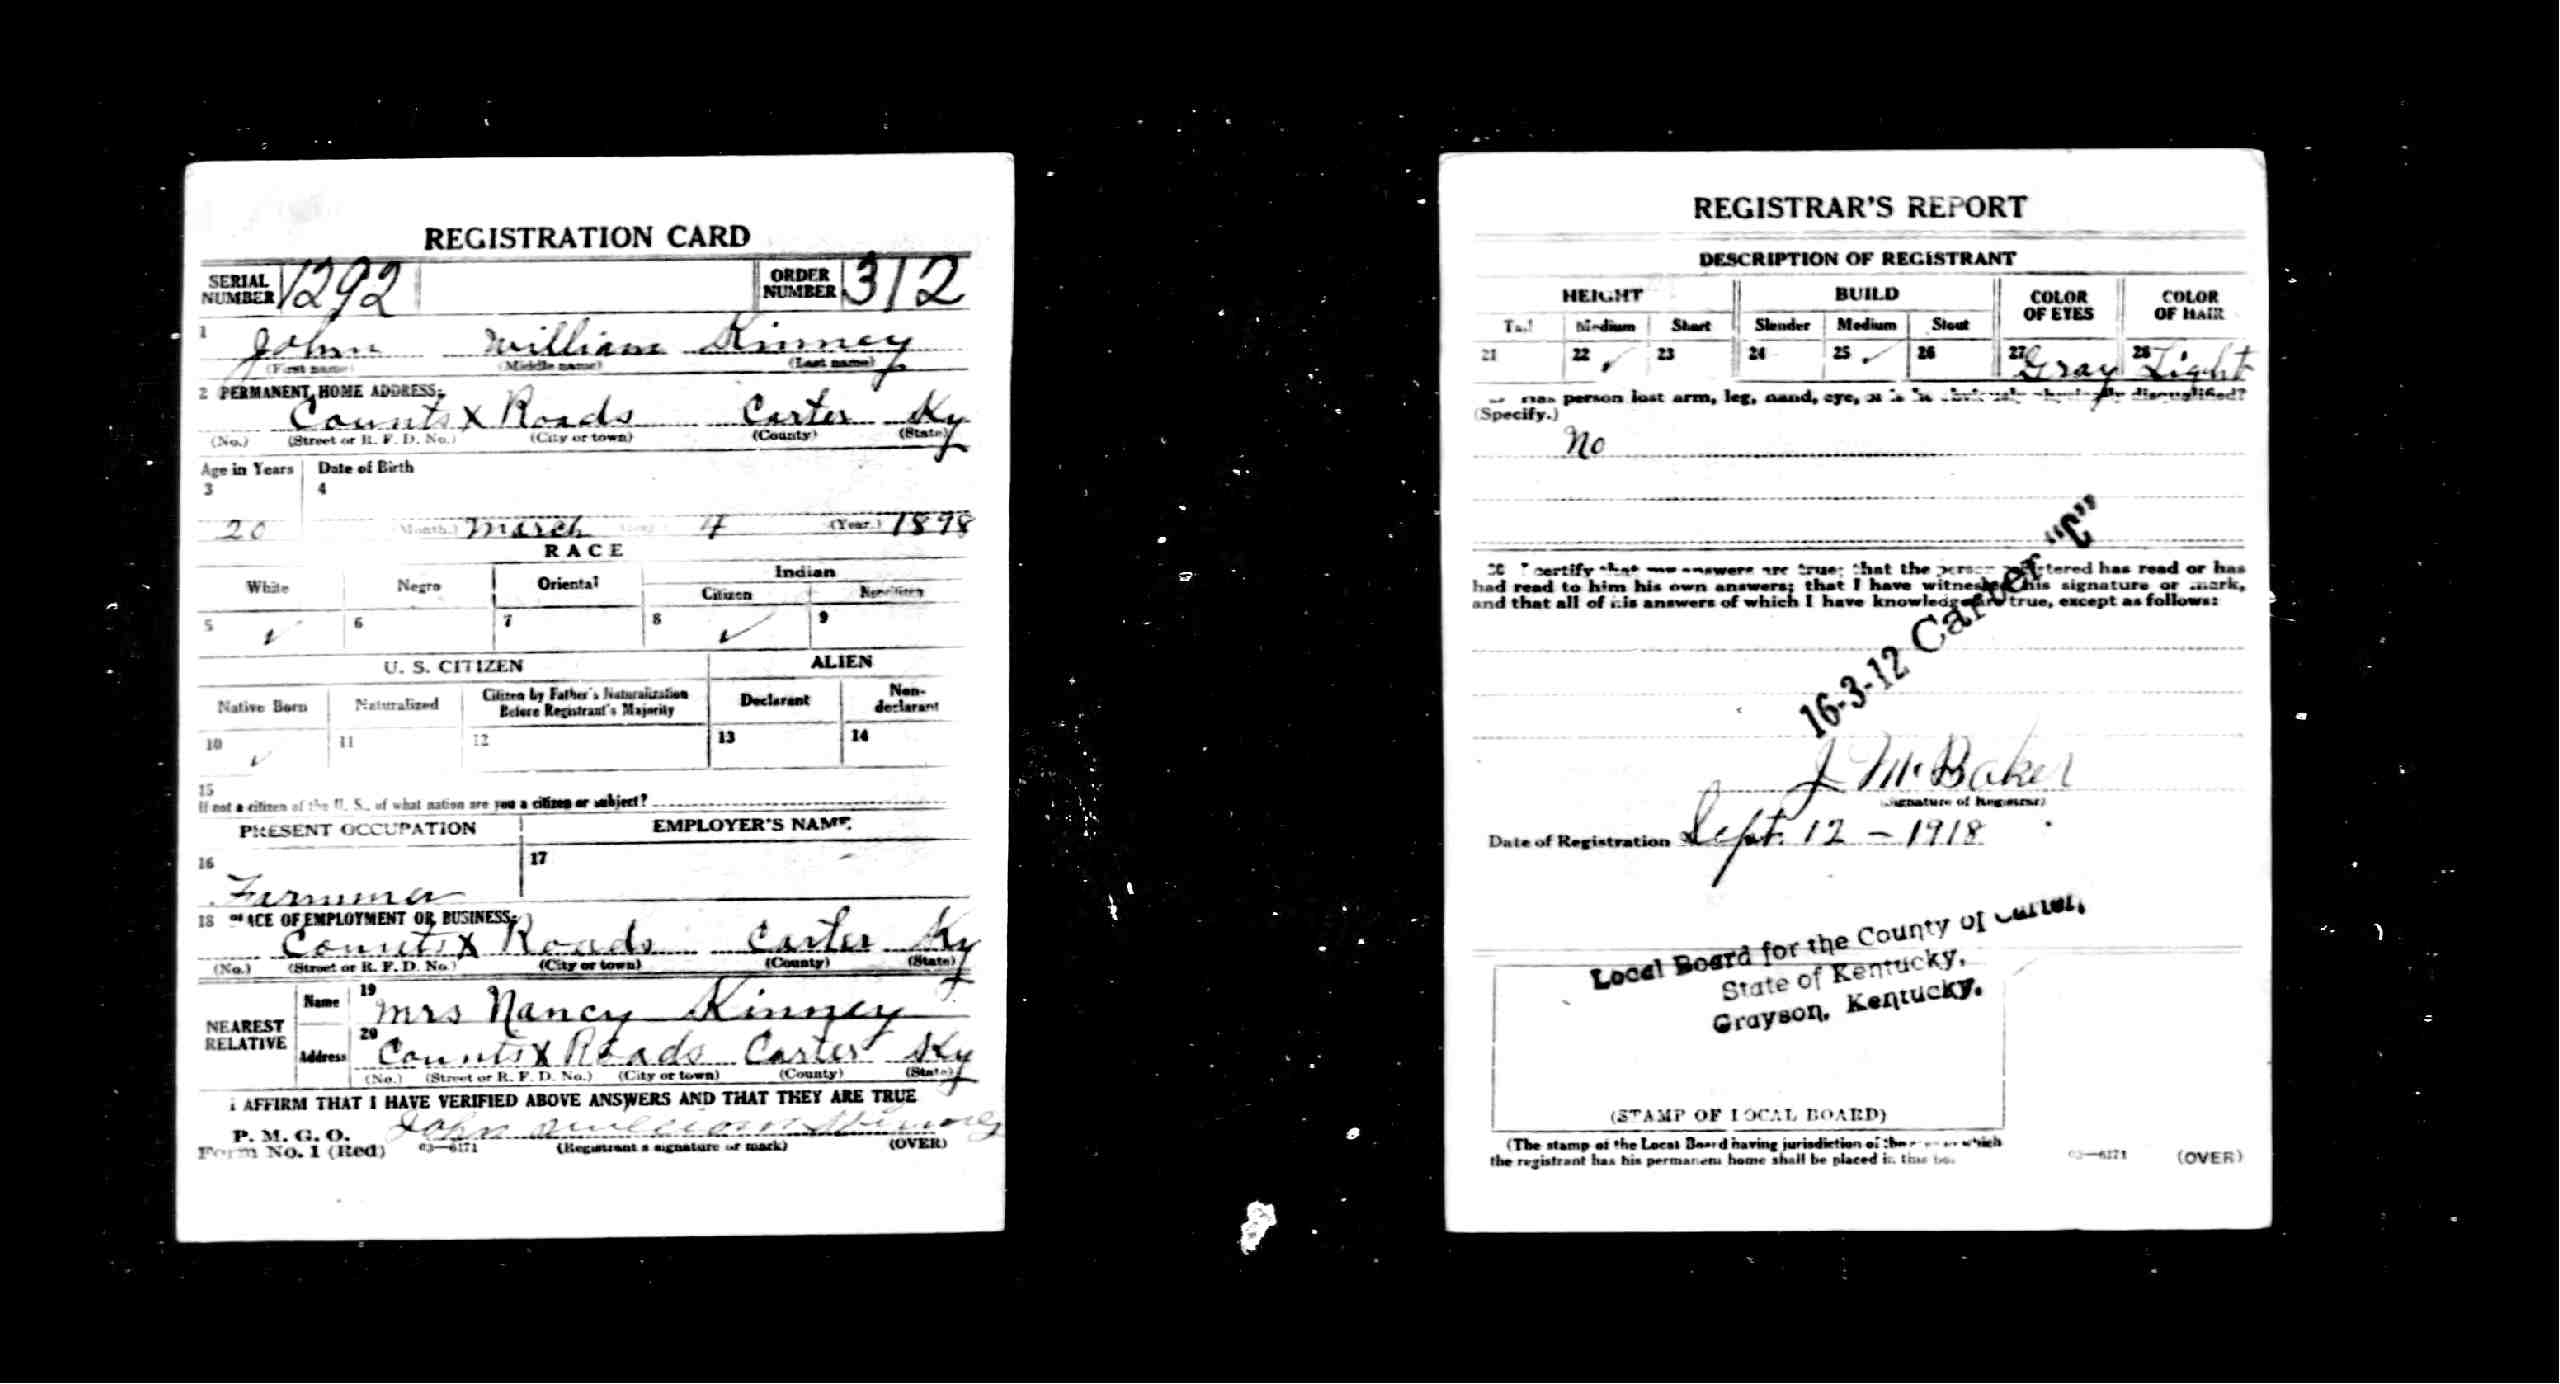 REGISTRATION CARD
SERIAL NUMBER 1292 ORDER NUMBER 312
1 John William Kinney
(First name) (Middle name) (Last name)
2 PERMANENT HOME ADDRESS:
Counts X Roads Carter Ky
(No.) (Street or R. F. D. No.) (City or town) (County) (State)
Age in Years Date of Birth
3 4
20 (Month.) March (Day.) 4 (Year.) 1898
RACE
White Negro Oriental Indian
Citizen Noncitizen
5 ✓ 6 7 8 ✓ 9
U. S. CITIZEN ALIEN
Native Born Naturalized Citizen by Father's Naturalization Before Registrant's Majority Declarant Non-declarant
10 ✓ 11 12 13 14
15
If not a citizen of the U. S., of what nation are you a citizen or subject?
PRESENT OCCUPATION EMPLOYER'S NAME
16 Farmmer 17 –
18 PLACE OF EMPLOYMENT OR BUSINESS:
Counts X Roads Carter Ky
(No.) (Street or R. F. D. No.) (City or town) (County) (State)
NEAREST RELATIVE
Name 19 Mrs Nancy Kinney
Address 20 Counts X Roads Carter Ky
(No.) (Street or R. F. D. No.) (City or town) (County) (State)
I AFFIRM THAT I HAVE VERIFIED ABOVE ANSWERS AND THAT THEY ARE TRUE
P. M. G. O.
John William Kinney
Form No. 1 (Red) 03—6171 (Registrant's signature or mark) (OVER)
REGISTRAR'S REPORT
DESCRIPTION OF REGISTRANT
HEIGHT BUILD COLOR OF EYES COLOR OF HAIR
Tall Medium Short Slender Medium Stout
21 22 ✓ 23 24 25 ✓ 26 27 Gray 28 Light
Has person lost arm, leg, hand, eye, or is he obviously physically disqualified?
(Specify.)
No
30 I certify that my answers are true; that the person registered has read or has
had read to him his own answers; that I have witnessed his signature or mark,
and that all of his answers of which I have knowledge are true, except as follows:
16-3-12 Carter "C"
J McBaker
(Signature of Registrar)
Date of Registration Sept. 12 – 1918
Local Board for the County of Carter,
State of Kentucky,
Grayson, Kentucky.
(STAMP OF LOCAL BOARD)
(The stamp of the Local Board having jurisdiction of the area in which
the registrant has his permanent home shall be placed in this box.
03—6171 (OVER)